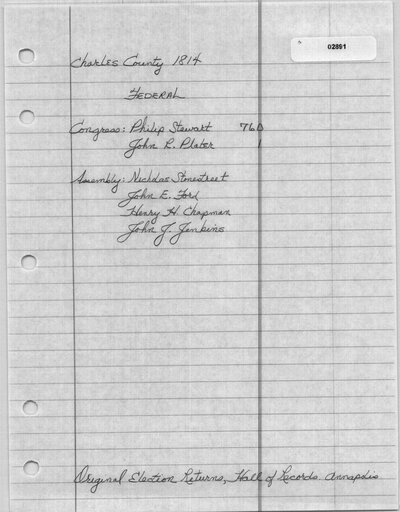 02891
Charles County 1814
FEDERAL
Congress: Philip Stewart 760
John R. Plater 1
Assembly: Nicholas Stonestreet
John E. Ford
Henry H. Chapman
John J. Jenkins
Original Election Returns, Hall of Records. Annapolis